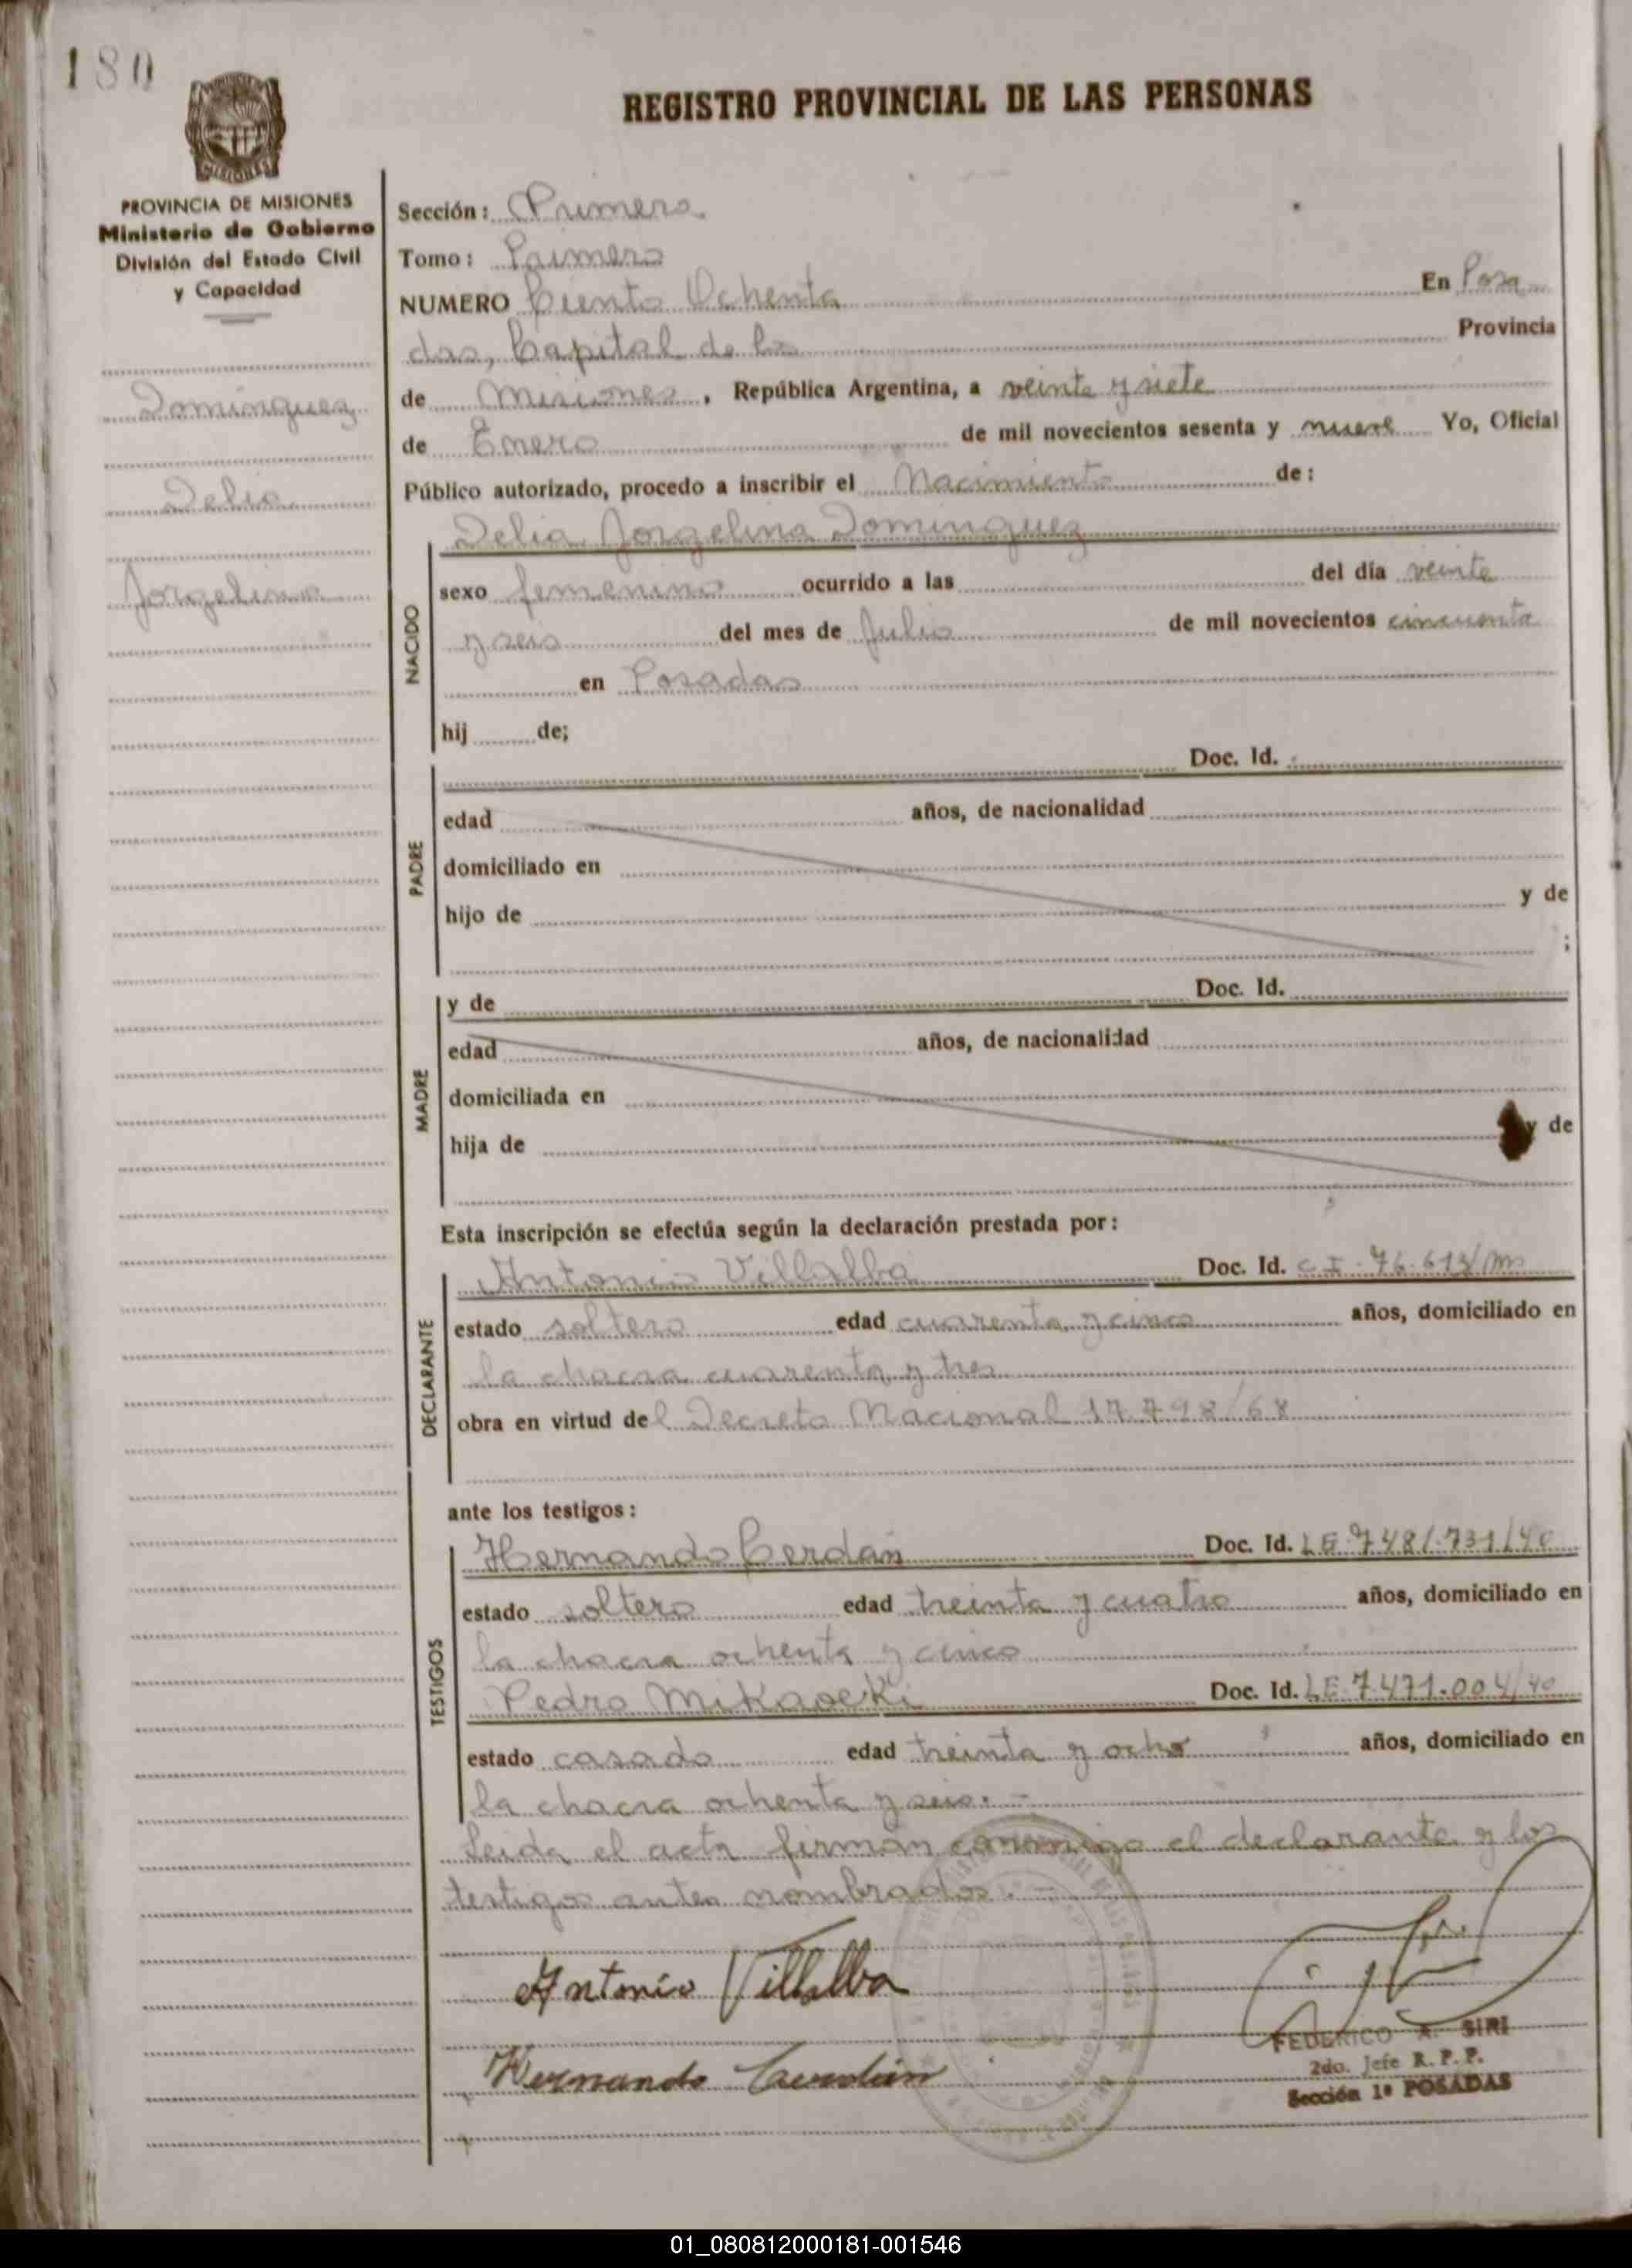 180
REGISTRO PROVINCIAL DE LAS PERSONAS
MISIONES
PROVINCIA DE MISIONES
Ministerio de Gobierno
División del Estado Civil
y Capacidad
Dominguez
Delia
Jorgelina
Sección: Primera
Tomo: Primero
NUMERO Ciento Ochenta En Posa
das, Capital de la Provincia
de Misiones, República Argentina, a veinte y siete
de Enero de mil novecientos sesenta y nueve Yo, Oficial
Público autorizado, procedo a inscribir el Nacimiento de:
Delia Jorgelina Dominguez
NACIDO
sexo femenino ocurrido a las del día veinte
y seis del mes de Julio de mil novecientos cincuenta
en Posadas
hij de;
PADRE
Doc. Id.
edad años, de nacionalidad
domiciliado en
hijo de y de
;
MADRE
y de Doc. Id.
edad años, de nacionalidad
domiciliada en
hija de y de
Esta inscripción se efectúa según la declaración prestada por:
DECLARANTE
Antonio Villalba Doc. Id. C I. 76.613/m
estado soltero edad cuarenta y cinco años, domiciliado en
la chacra cuarenta y tres
obra en virtud del Decreto Nacional 17.798/68
ante los testigos:
TESTIGOS
Hernando Cerdán Doc. Id. LE 7481.731/40
estado soltero edad treinta y cuatro años, domiciliado en
la chacra ochenta y cinco
Pedro Doc. Id. LE 7.471.004/40
estado casado edad treinta y ocho años, domiciliado en
la chacra ochenta y seis. -
Leida el acta firman conmigo el declarante y los
testigos antes nombrados. -
Antonio Villalba
Hernando Cerdán
FEDERICO A. SIRI
2do. Jefe R. P. P.
Sección 1ª POSADAS
01_080812000181-001546